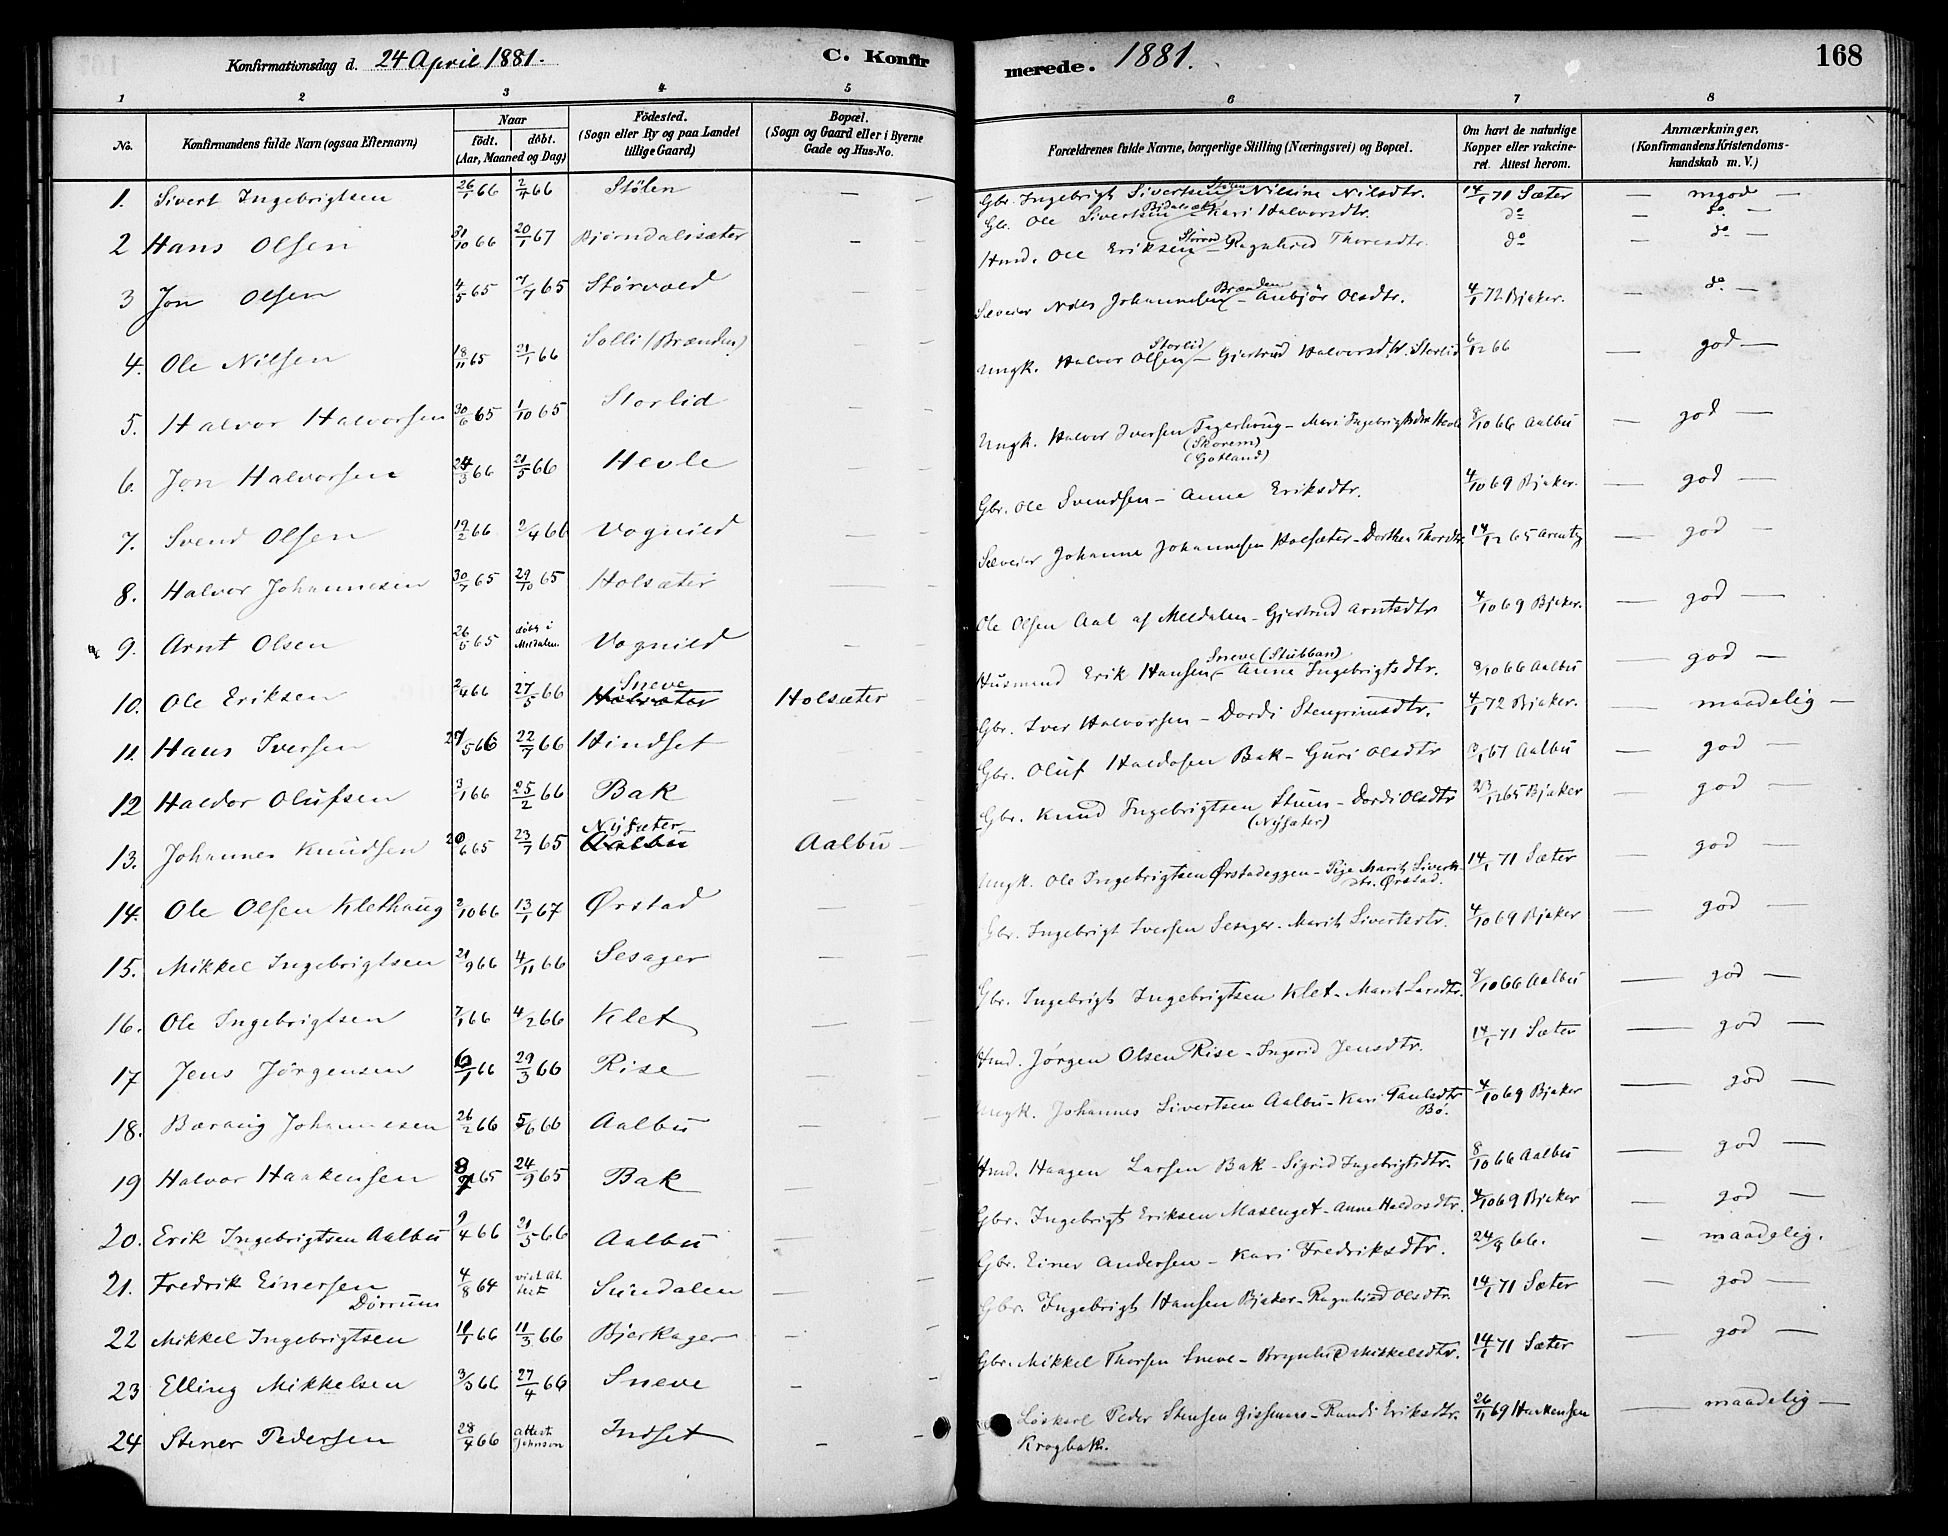 Konfirmationsdag d. 24 April 1881. C. Konfir
1 2 3 4 5
No. Konfirmandens fulde Navn (ogsaa Efternavn) Naar født. døbt. (Aar, Maaned og Dag) Fødested. (Sogn eller By og paa Landet tillige Gaard) Bopæl. (Sogn og Gaard eller i Byerne Gade og Hus-No.
1. Sivert Ingebrigtsen 26/1 66 2/4 66 Stølen —
2 Hans Olsen 31/10 66 20/1 67 Bjørndalsæter —
3 Jon Olsen 4/5 65 7/7 65 Størvold —
4. Ole Nilsen 18/11 65 21/1 66 Solli (Brænden) —
5. Halvor Halvorsen 30/6 65 1/10 65 Storlid —
6. Jon Halvorsen 24/3 66 21/5 66 Hevle —
7. Svend Olsen 19/2 66 2/4 66 Vognild —
8. Halvor Johannesen 30/7 65 29/10 65 Holsæter —
9. Arnt Olsen 26/5 65 døbt i Meldalen Vognild —
10. Ole Eriksen 2/4 66 27/5 66 Sneve Holsæter Holsæter
11. Hans Iversen 27/5 66 22/7 66 Hindset
12 Haldor Olufsen 3/1 66 25/2 66 Bak —
13. Johannes Knudsen 20/6 65 23/7 65 Nysæter Aalbu Aalbu —
14. Ole Olsen Klethaug 2/10 66 13/1 67 Ørstad —
15. Mikkel Ingebrigtsen 21/9 66 4/11 66 Sesager —
16. Ole Ingebrigtsen 7/1 66 4/2 66 Klet —
17 Jens Jørgensen 6/1 66 29/3 66 Rise —
18. Baraug Johannesen 26/2 66 5/6 66 Aalbu —
19 Halvor Haakensen 8/7 65 24/9 65 Bak —
20. Erik Ingebrigtsen Aalbu 9/4 66 21/5 66 Aalbu —
21. Fredrik Einersen Dørrum 4/8 64 Sundalen —
22 Mikkel Ingebrigtsen 11/1 66 11/3 66 Bjerkager —
23 Elling Mikkelsen 3/3 66 27/4 66 Sneve —
24 Stener Pedersen 28/4 66 attest Johnson Indset —
merede. 1881. 168
6 7 8
Forældrenes fulde Navne, borgerlige Stilling (Næringsvei) og Bopæl. Om havt de naturlige Kopper eller vakcineret. Attest herom. Anmærkninger. (Konfirmandens Kristendomskundskab m. V.)
Gbr. Ingebrigt Sivertsen Stølen – Nilsine Nilsdtr. 14/1 71 Sæter — mgod —
Gbr. Ole Sivertsen – Kari Halvorsdtr. do — do. —
Hmd. Ole Eriksen Størvold – Ragnhild Thoresdtr. do — do —
Selveier Nils Johannesen Brænden – Anbjør Olsdtr. 4/1 72 Bjaker. — do —
Ungk. Halvor Olsen Storlid – Gjertrud Halvorsdtr. Storlid 6/12 66 — god —
Ungk. Halvor Iversen Fagerhaug – Mari Ingebrigtsdtr Hevle (Skorem) (Gotland) 8/10 66 Aalbu — god —
Gbr. Ole Svendsen – Anne Eriksdtr. 4/10 69 Bjaker. — god —
Selveier Johanne Johannesen Holsæter – Dorthea Thorsdtr. 14/12 65 Arentz — god —
Ole Olsen Aal af Meldalen – Gjertrud Arntsdtr 4/10 69 Bjaker. — god —
Husmand Erik Hansen Sneve (Stubban) – Anne Ingebrigtsdtr. 8/10 66 Aalbu — god —
Gbr. Iver Halvorsen – Dordi Stengrimsdtr. 4/1 72 Bjaker. — maadelig —
Gbr. Oluf Haldosen Bak – Guri Olsdtr 3/1 67 Aalbu — god —
Gbr. Knud Ingebrigtsen Stuen – Dordi Olsdtr (Nysæter) 23/12 65 Bjaker — god —
Ungk. Ole Ingebrigtsen Ørstadeggen – Pige Marit Sivertsdtr. Ørstad. 14/1 71 Sæter — god —
Gbr. Ingebrigt Iversen Sesager – Marit Sivertsdtr. 4/10 69 Bjaker — god —
Gbr. Ingebrigt Ingebrigtsen Klet – Marit Larsdtr. 8/10 66 Aalbu — god —
Hmd. Jørgen Olsen Rise – Ingerid Jensdtr. 14/1 71 Sæter — god —
Ungk. Johannes Sivertsen Aalbu – Kari Paulsdtr Bø. 4/10 69 Bjaker — god —
Hmd. Haagen Larsen Bak – Sigrid Ingebrigtsdtr. 8/10 66 Aalbu — god —
Gbr. Ingebrigt Eriksen Maslenget – Anne Haldosdtr. 4/10 69 Bjaker — god —
Gbr. Einer Andersen – Kari Fredriksdtr. 24/9 66. — maadelig.
Gbr. Ingebrigt Hansen Bjaker – Ragnhild Olsdtr. 14/1 71 Sæter — god —
Gbr. Mikkel Thorsen Sneve – Brynhild Mikkelsdtr. 14/1 71 Sæter — god —
Løskarl Peder Stensen – Randi Eriksdtr. Krogbak. 26/11 69 Haakensen — maadelig —